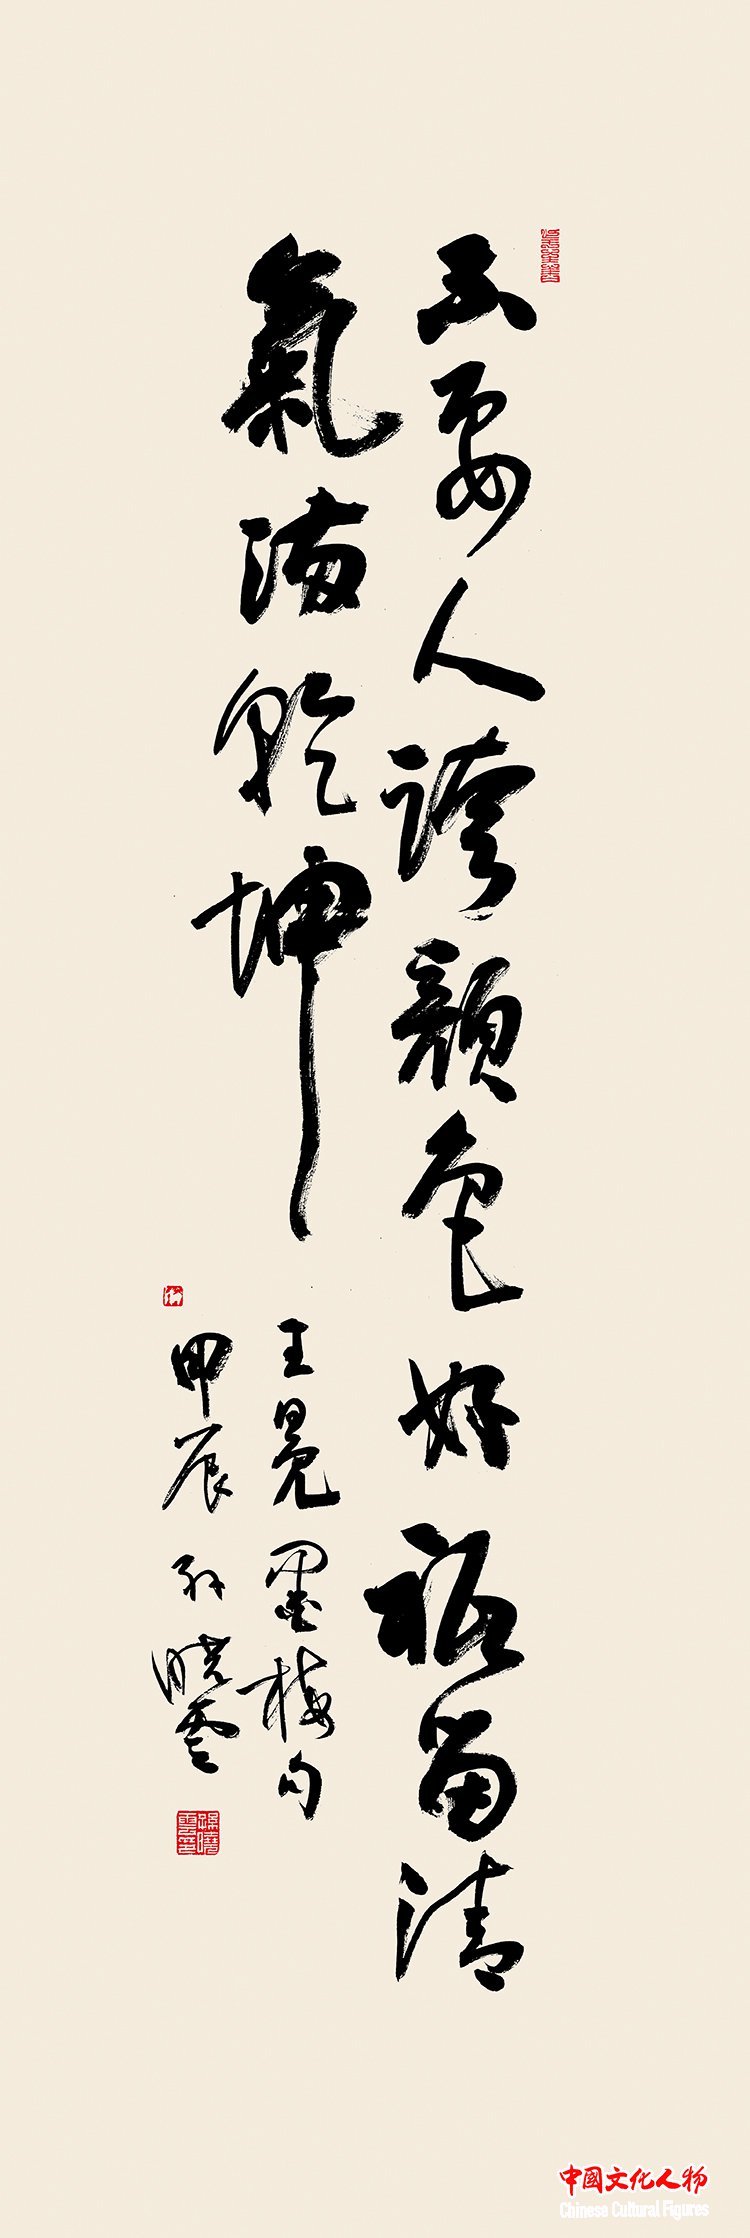 不要人誇顏色好祗留清
氣滿乾坤
王冕墨梅句
甲辰孙曉雲
孫曉雲印
中國文化人物
Chinese Cultural Figures